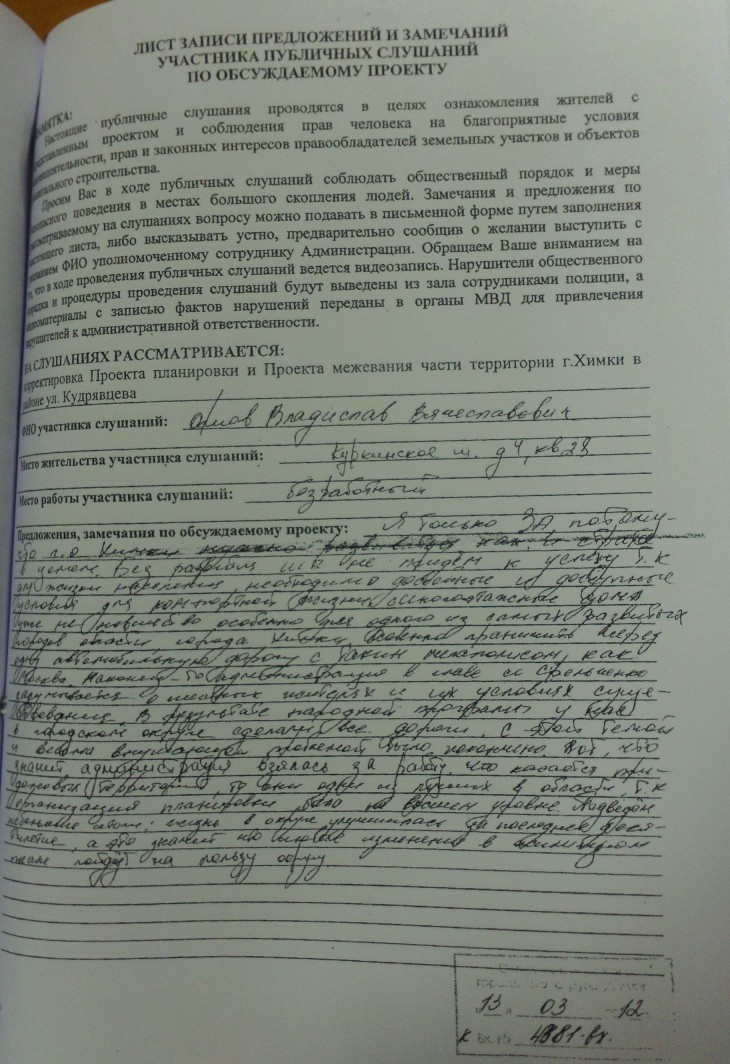 ЛИСТ ЗАПИСИ ПРЕДЛОЖЕНИЙ И ЗАМЕЧАНИЙ
УЧАСТНИКА ПУБЛИЧНЫХ СЛУШАНИЙ
ПО ОБСУЖДАЕМОМУ ПРОЕКТУ
Настоящие публичные слушания проводятся в целях ознакомления жителей с
проектом и соблюдения прав человека на благоприятные условия
прав и законных интересов правообладателей земельных участков и объектов
строительства.
Просим Вас в ходе публичных слушаний соблюдать общественный порядок и меры
поведения в местах большого скопления людей. Замечания и предложения по
на слушаниях вопросу можно подавать в письменной форме путем заполнения
листа, либо высказывать устно, предварительно сообщив о желании выступить с
ФИО уполномоченному сотруднику Администрации. Обращаем Ваше вниманием на
что в ходе проведения публичных слушаний ведется видеозапись. Нарушители общественного
и процедуры проведения слушаний будут выведены из зала сотрудниками полиции, а
с записью фактов нарушений переданы в органы МВД для привлечения
к административной ответственности.
НА СЛУШАНИЯХ РАССМАТРИВАЕТСЯ:
корректировка Проекта планировки и Проекта межевания части территории г.Химки в
районе ул. Кудрявцева
ФИО участника слушаний: Владислав Вячеславович
Место жительства участника слушаний: Куркинское ш. д 4, кв 28
Место работы участника слушаний: безработный
Предложения, замечания по обсуждаемому проекту: Я только ЗА потому-
в целом. Без развития мы не придём к успеху т.к
для жизни населения необходимо и доступные
условия для комфортной жизни. многоэтажные дома
уже не новшество особенно для одного из самых развитых
городов области города Химки, граничить через
одну автомобильную дорогу с таким мегаполисом, как
Москва. Наконец-то администрация в главе со Стрельченко
задумывается о жителях и их условиях суще-
ствования. В результате народной программы у нас
в городском округе сделали все дороги, с этой темой
и весьма проблемой было покончено. Вот, что
значит администрация взялась за работу. Что касается при-
домовых территорий, то они одни из лучших в области, т.к
организация планировки была на высшем уровне. Подведём
итоги: жизнь в округе улучшилась за последнее деся-
тилетие, а это значит что изменения в
плане пойдут на пользу округу.
13 03 12
вх. № 4881-вх.